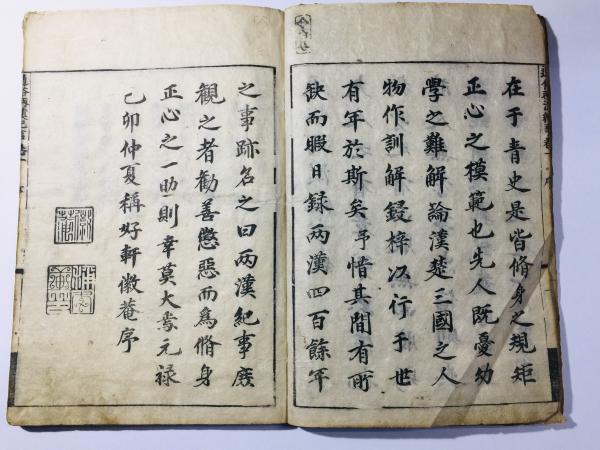 在于青史是皆脩身之規矩
正心之模範也先人既憂幼
學之難解論漢楚三國之人
物作訓解鋟梓以行于世
有年於斯矣予惜其間有所
缺而暇日録两漢四百餘年
之事跡名之曰两漢紀事庻
觀之者勸善懲惡而為脩身
正心之一助則幸莫大焉元禄
己卯仲夏稱好軒徽菴序